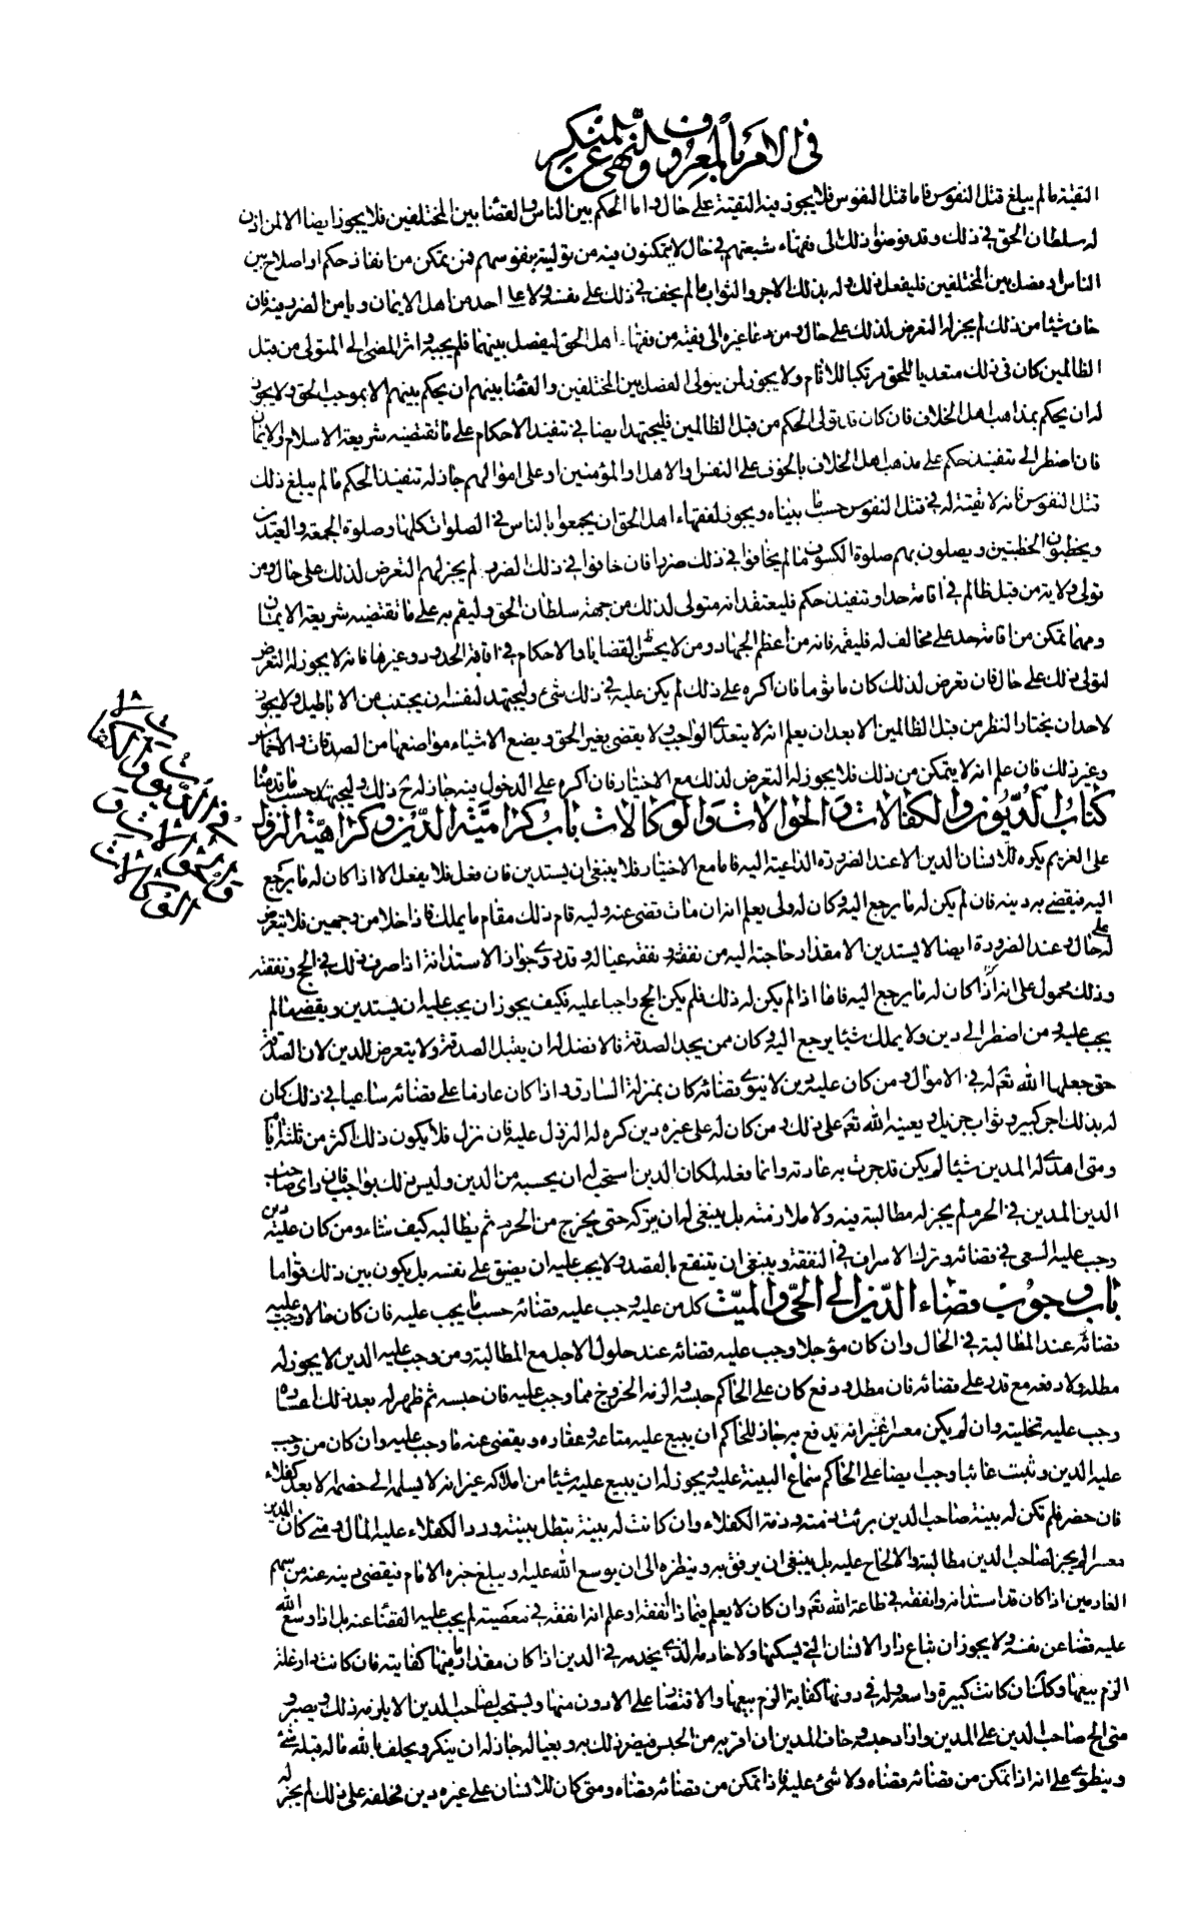 في الامر بالمعروف والنهي عن المنكر
التقية ما لم يبلغ قتل النفوس فاما قتل النفوس فلا يجوز فيه التقية على حال واما الحكم بين الناس والقضا بين المختلفين فلا يجوز ايضا الا لمن اذن
له سلطان الحق في ذلك وقد فوضوا ذلك الى فقهاء شيعتهم في حال لا يتمكنون فيه من توليته بنفوسهم فمن تمكن من انفاذ حكم او اصلاح بين
الناس او فصل بين المختلفين فليفعل ذلك وله بذلك الاجر والثواب ما لم يخف في ذلك على نفسه ولا على احد من اهل الايمان ويامن الضرر فيه فان
خاف شيئا من ذلك لم يجز له التعرض لذلك على حال ومن دعا غيره الى فقيه من فقهاء اهل الحق ليفصل بينهما فلم يجبه واثر المضى الى المتولى من قبل
الظالمين كان في ذلك متعديا للحق مرتكبا للاثام ولا يجوز لمن يتولى الفصل بين المختلفين والقضا بينهم ان يحكم بينهم الا بموجب الحق ولا يجوز
له ان يحكم بمذاهب اهل الخلاف فان كان قد تولى الحكم من قبل الظالمين فليجتهد ايضا في تنفيذ الاحكام على ما تقتضيه شريعة الاسلام والايمان
فان اضطر الى تنفيذ حكم على مذهب اهل الخلاف بالخوف على النفس او الاهل او المؤمنين او على اموالهم جاز له تنفيذ الحكم ما لم يبلغ ذلك
قتل النفوس فانه لا تقية له في قتل النفوس حسب ما بيناه ويجوز لفقهاء اهل الحق ان يجمعوا بالناس في الصلوات كلها وصلوة الجمعة والعيدين
ويخطبون الخطبتين ويصلون بهم صلوة الكسوف ما لم يخافوا في ذلك ضررا فان خافوا في ذلك الضرر لم يجز لهم التعرض لذلك على حال ومن
تولى ولاية من قبل ظالم في اقامة حد او تنفيذ حكم فليعتقد انه متولى لذلك من جهة سلطان الحق وليقم به على ما تقتضيه شريعة الايمان
ومهما تمكن من اقامة حد على مخالف له فليقمه فانه من اعظم الجهاد ومن لا يحسن القضايا والاحكام في اقامة الحدود وغيرها فانه لا يجوز له التعرض
لتولى ذلك على حال فان تعرض لذلك كان ماثوما فان اكره على ذلك لم يكن عليه في ذلك شئ وليجتهد لنفسه ان يجتنب من الاباطيل ولا يجوز
لاحد ان يختار النظر من قبل الظالمين الا بعد ان يعلم انه لا يتعدى الواجب ولا يقضى بغير الحق ويضع الاشياء مواضعها من الصدقات والاخماس
وغير ذلك فان علم انه لا يتمكن من ذلك فلا يجوز له التعرض لذلك مع الاختيار فان اكره على الدخول فيه جاز له ح ذلك وليجتهد حسب ما قدمناه
كتاب الديون والكفالات والحوالات والوكالات باب كراهية الدين وكراهية النزول
على الغريم يكره للانسان الدين الا عند الضرورة الداعية اليه فاما مع الاختيار فلا ينبغى ان يستدين فان فعل فلا يفعل الا اذا كان له ما يرجع
اليه فيقضى به دينه فان لم يكن له ما يرجع اليه وكان له ولى يعلم انه ان مات قضى عنه وليه قام ذلك مقام ما يملك فاذا خلا من وجهين فلا يتعرض
له على حال وعند الضرورة ايضا لا يستدين الا مقدار حاجته اليه من نفقته ونفقة عياله وقد روى جواز الاستدانة اذا صرف ذلك في الحج ونفقته
وذلك محمول على انه اذا كان له ما يرجع اليه فاما اذا لم يكن له ذلك فلم يكن الحج واجبا عليه فكيف يجوز ان يجب عليه ان يستدين ويقضى ما لم
يجب عليه ومن اضطر الى دين ولا يملك شيئا يرجع اليه وكان ممن يجد الصدقة فالافضل له ان يقبل الصدقة ولا يتعرض للدين لان الصدقة
حق جعلها الله تعم له في الاموال ومن كان عليه دين لا ينوى قضائه كان بمنزلة السارق واذا كان عازما على قضائه ساعيا في ذلك كان
له بذلك اجر كبير وثواب جزيل ويعينه الله تعم على ذلك ومن كان له على غيره دين كره له النزول عليه فان نزل فلا يكون ذلك اكثر من ثلثة ايام
ومتى اهدى له المدين شيئا لم يكن قد جرت به عادته وانما فعله لمكان الدين استحب له ان يحسبه من الدين وليس ذلك بواجب فان راى صاحب
الدين المدين في الحرم لم يجز له مطالبته فيه ولا ملازمته بل ينبغى له ان يتركه حتى يخرج من الحرم ثم يطالبه كيف شاء ومن كان عليه دين
وجب عليه السعى في قضائه وترك الاسراف في النفقة وينبغى ان يتقنع بالقصد ولا يجب عليه ان يضيق على نفسه بل يكون بين ذلك قواما
باب وجوب قضاء الدين الى الحى والميت كل من عليه وجب عليه قضائه حسب ما يجب عليه فان كان حالا وجب عليه
قضائه عند المطالبة في الحال وان كان مؤجلا وجب عليه قضائه عند حلول الاجل مع المطالبة ومن وجب عليه الدين لا يجوز له
مطله ولا دفعه مع قدرته على قضائه فان مطل ودفع كان على الحاكم حبسه والزمه الخروج مما وجب عليه فان حبسه ثم ظهر له بعد ذلك اعساره
وجب عليه تخليته وان لم يكن معسرا غير انه يدفع به جاز للحاكم ان يبيع عليه متاعه وعقاره ويقضى عنه ما وجب عليه وان كان من وجب
عليه الدين وثبت غائبا وجب ايضا على الحاكم سماع البينة عليه ويجوز له ان يبيع عليه شيئا من املاكه غير انه لا يسلمه الى خصمه الا بعد كفلاء
فان حضر فلم تكن له بينة صاحب الدين برئت ذمته وذمة الكفلاء وان كانت له بينة تبطل بينته ورد الكفلاء عليه المال ومتى كان المدين
معسرا لم يجز لصاحب الدين مطالبته والالحاح عليه بل ينبغى ان يرفق به وينظره الى ان يوسع الله عليه او يبلغ خبره الامام فيقضى دينه عنه من سهم
الغارمين اذا كان قد استدانه وانفقه في طاعة الله تعم وان كان لا يعلم فيما ذا انفقه او علم انه انفقه في معصيته لم يجب عليه القضا عنه بل اذا وسع الله
عليه قضا عن نفسه ولا يجوز ان تباع دار الانسان التي يسكنها ولا خادمه الذي يخدمه في الدين اذا كان مقدار ما فيها كفايته فان كانت دار غلة
الزم بيعها وكك ان كانت كبيرة واسعة وله في دونها كفاية الزم بيعها والاقتصار على الادون منها ويستحب لصاحب الدين الا يلزمه ذلك ويصبر و
متى الح صاحب الدين على المدين واراد حبسه وخاف المدين ان اقر به من الحبس فيضر ذلك به وبعياله جاز له ان ينكر ويحلف بالله ما له قبله شئ
وينطوى على انه اذا تمكن من قضائه قضاه ولا شئ عليه فاذا تمكن من قضائه قضاه ومتى كان للانسان على غيره دين فحلفه على ذلك لم يجز له